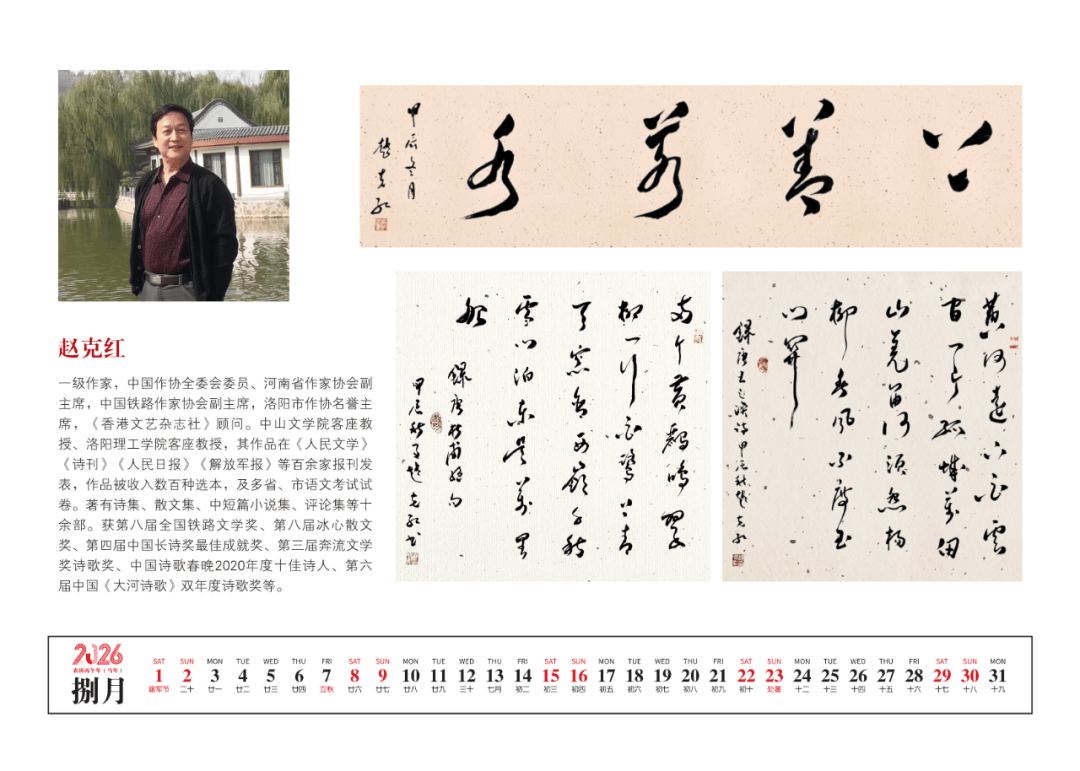 上善若水
甲辰冬月
趙克红
赵克红
一级作家，中国作协全委会委员、河南省作家协会副
主席，中国铁路作家协会副主席，洛阳市作协名誉主
席，《香港文艺杂志社》顾问。中山文学院客座教
授、洛阳理工学院客座教授，其作品在《人民文学》
《诗刊》《人民日报》《解放军报》等百余家报刊发
表，作品被收入数百种选本，及多省、市语文考试试
卷。著有诗集、散文集、中短篇小说集、评论集等十
余部。获第八届全国铁路文学奖、第八届冰心散文
奖、第四届中国长诗奖最佳成就奖、第三届奔流文学
奖诗歌奖、中国诗歌春晚2020年度十佳诗人、第六
届中国《大河诗歌》双年度诗歌奖等。
黄河遠上白雲
间一片孤城萬仞
山羌笛何须怨杨
柳春風不度玉
门関
録唐王之涣诗甲辰秋趙克红
两个黄鹂鸣翠
柳一行白鹭上青
天窗含西岭千秋
雪门泊东吴萬里
船
録唐杜甫诗句
甲辰秋月趙克红书
2026
农历丙午年（马年）
捌月
SAT SUN MON TUE WED THU FRI SAT SUN MON TUE WED THU FRI SAT SUN MON TUE WED THU FRI SAT SUN MON TUE WED THU FRI SAT SUN MON
1 2 3 4 5 6 7 8 9 10 11 12 13 14 15 16 17 18 19 20 21 22 23 24 25 26 27 28 29 30 31
建军节 二十 廿一 廿二 廿三 廿四 立秋 廿六 廿七 廿八 廿九 三十 七月 初二 初三 初四 初五 初六 初七 初八 初九 初十 处暑 十二 十三 十四 十五 十六 十七 十八 十九